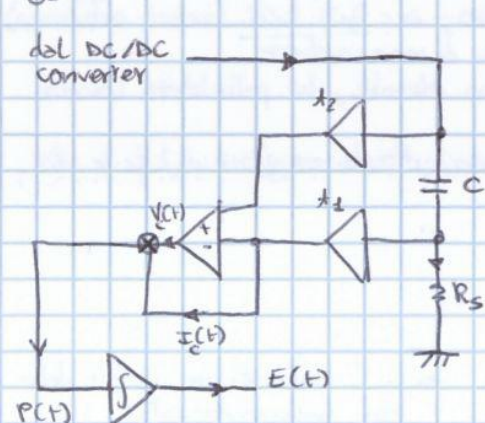 dal DC/DC
converter
A2
C
A1
Vc(t)
+
-
Rs
Ic(t)
∫
E(t)
P(t)